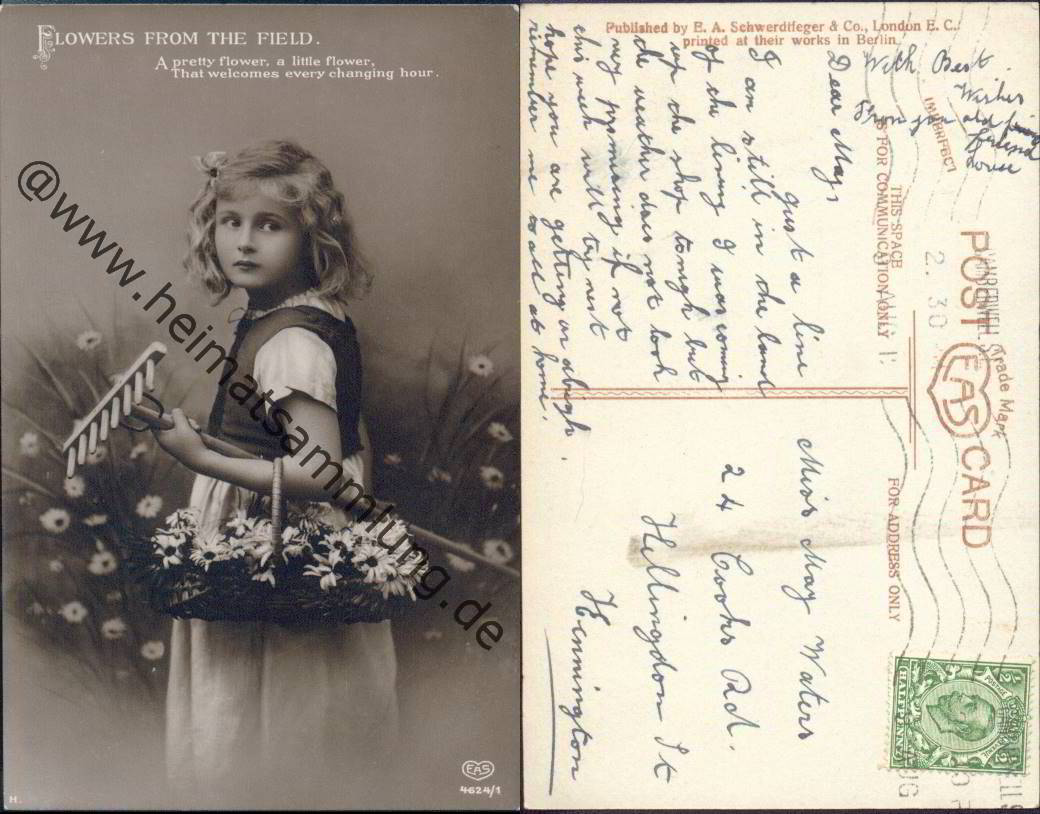 FLOWERS FROM THE FIELD.
A pretty flower, a little flower,
That welcomes every changing hour.
@www.heimatsammlung.de
EAS
4624/1
H.
Published by E. A. Schwerdtfeger & Co., London E. C.
printed at their works in Berlin.
With Best
Wishes
From your old
friend
Dear May,
Just a line
I am still in the land
of the living I was coming
up the shop tonight but
de weather does not look
very promising if not
this week will try next
hope you are getting on alright.
remember me to all at home.
THIS SPACE
IS FOR COMMUNICATION ONLY
POST CARD
EAS
Trade Mark
FOR ADDRESS ONLY
CAMBERWELL S.
2. 30
Miss May Waters
24 Cooks Rd.
Hillingdon St
Kennington
POSTAGE
HALFPENNY
½
½